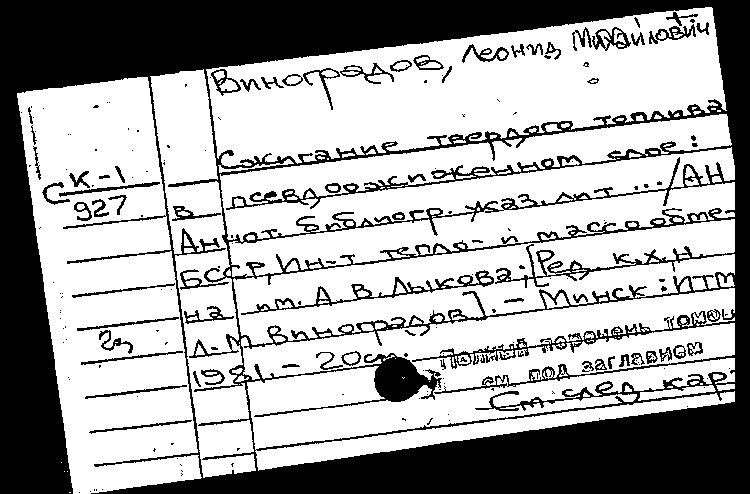 Виноградов, Леонид Михайлович
Сжигание твердого топлива
СК-1
927
в псевдоожиженном слое:
Аннот. библиогр. указ. лит ... / АН
БССР, Ин-т тепло- и массообме-
на им. А. В. Лыкова; [Ред. к.х.н.
Л. М. Виноградов]. - Минск: ИТМ
1981. - 20 см.
Полный перечень томов
см под заглавном
См. след. кар